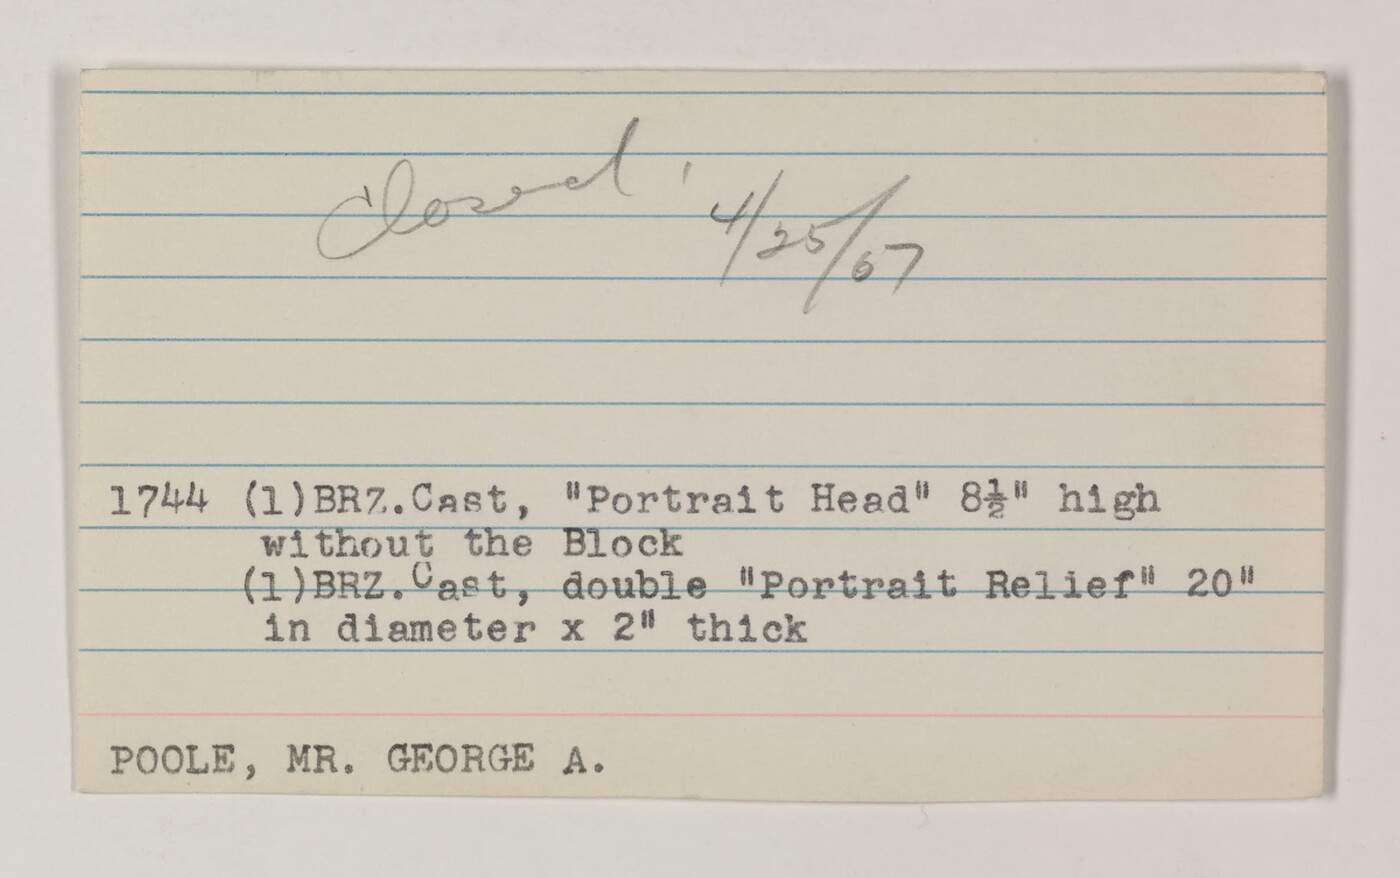 Closed. 4/25/67
1744 (1)BRZ.Cast, "Portrait Head" 8½" high
without the Block
(1)BRZ.Cast, double "Portrait Relief" 20"
in diameter x 2" thick
POOLE, MR. GEORGE A.